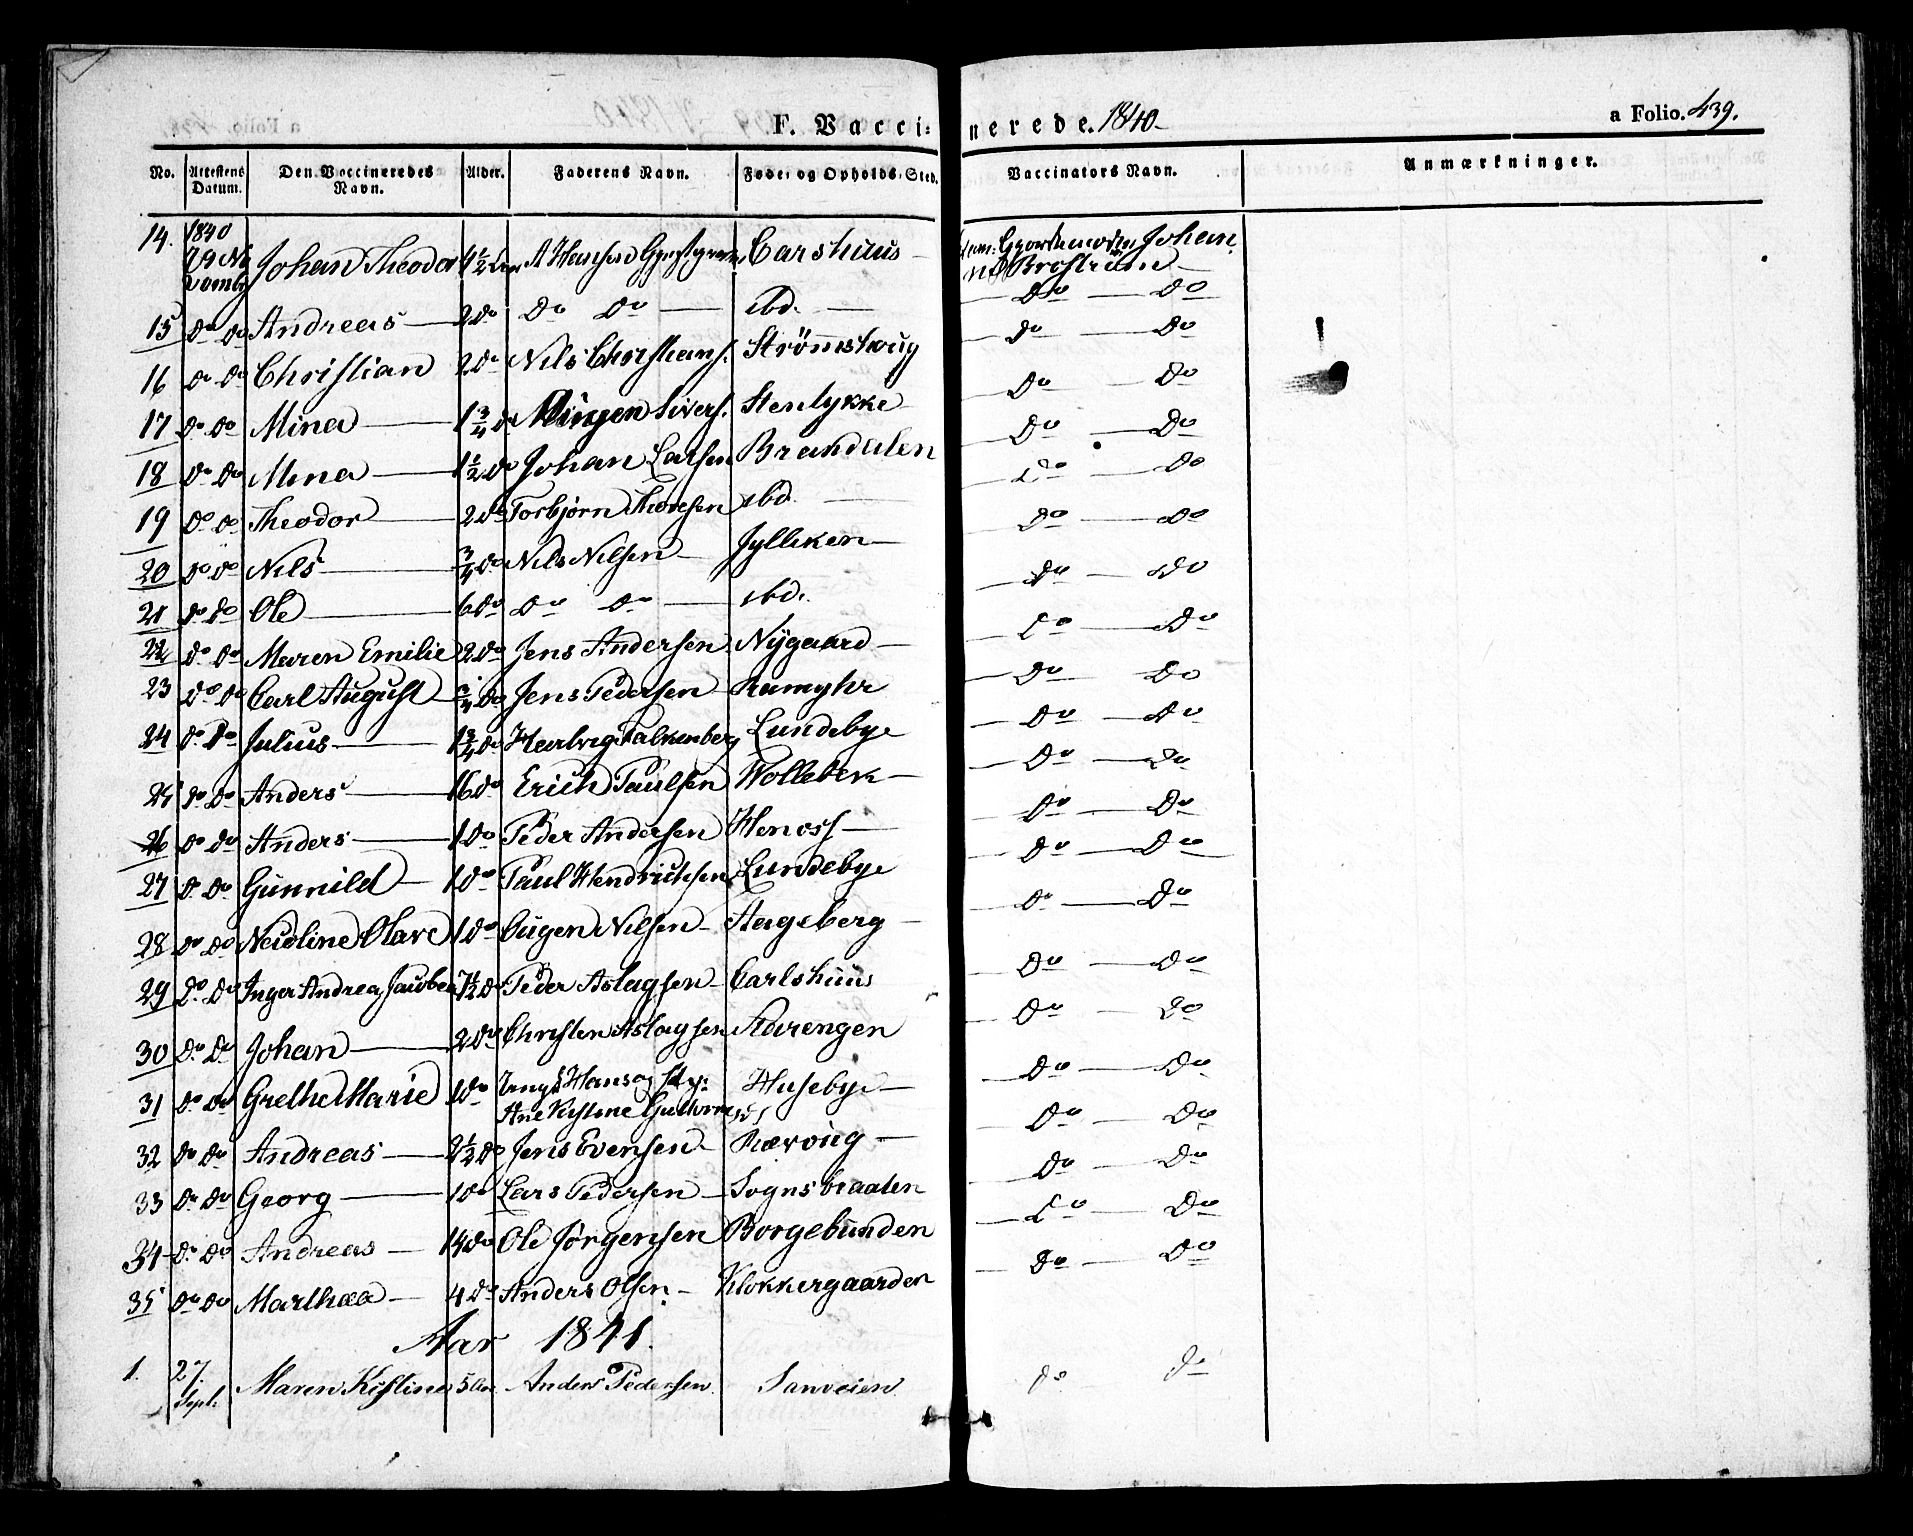 F. Vaccinerede. 1840
a Folio. 439.
No. Attestens Datum. Den Vaccineredes Navn. Alder. Faderens Navn. Føde- og Opholds-Sted. Vaccinators Navn. Anmærkninger.
14. 1840 29 Novembr Johan Theodor 4½ Aar A Hansen Carshuus Johan
Brostrøm
15 do do Andreas 2 do do do ibd. do do
16 do do Christian 2 do Nils Christians. Strømshoug do do
17 do do Mina 1¾ do Sivers. Stenlykke do do
18 do do Mina 1½ do Johan Larsen Brændalen do do
19 do do Theodor 2 do Torbjørn Thoresen ibd. do do
20 do do Nils ¾ do Nils Nilsen Jylleken do do
21 do do Ole 6 do do do ibd. do do
22 do do Maren Emilie 2 do Jens Andersen Nygaard do do
23 do do Carl August ¾ do Jens Pedersen Ramyhr do do
24 do do Julius 1¾ do Falkenberg Lundebye do do
25 do do Anders 16 do Erich Paulsen Wollebek do do
26 do do Anders 1 do Peder Andersen Henoss do do
27 do do Gunnild 1 do Paul Hendrichsen Lundebye do do
28 do do Olave 1 do Nilsen Stageberg do do
29 do do Inger Andrea 7½ do Peder Aslagsen Carlshuus do do
30 do do Johan 2 do Christen Aslagsen Starengen do do
31 do do Grethe Marie 1 do Hans og
Ane Kistine Husebye do do
32 do do Andreas 2½ do Jens Evensen Rævoug do do
33 do do Georg 1 do Lars Pedersen Sognsbraaten do do
34 do do Andreas 14 do Ole Jørgensen Borgebunden do do
35 do do Marthea 4 do Anders Olsen Klokkergaarden do do
Aar 1841.
1. 27. Sept. Maren Kistine 5 Aar Anders Pedersen Sanveien do do